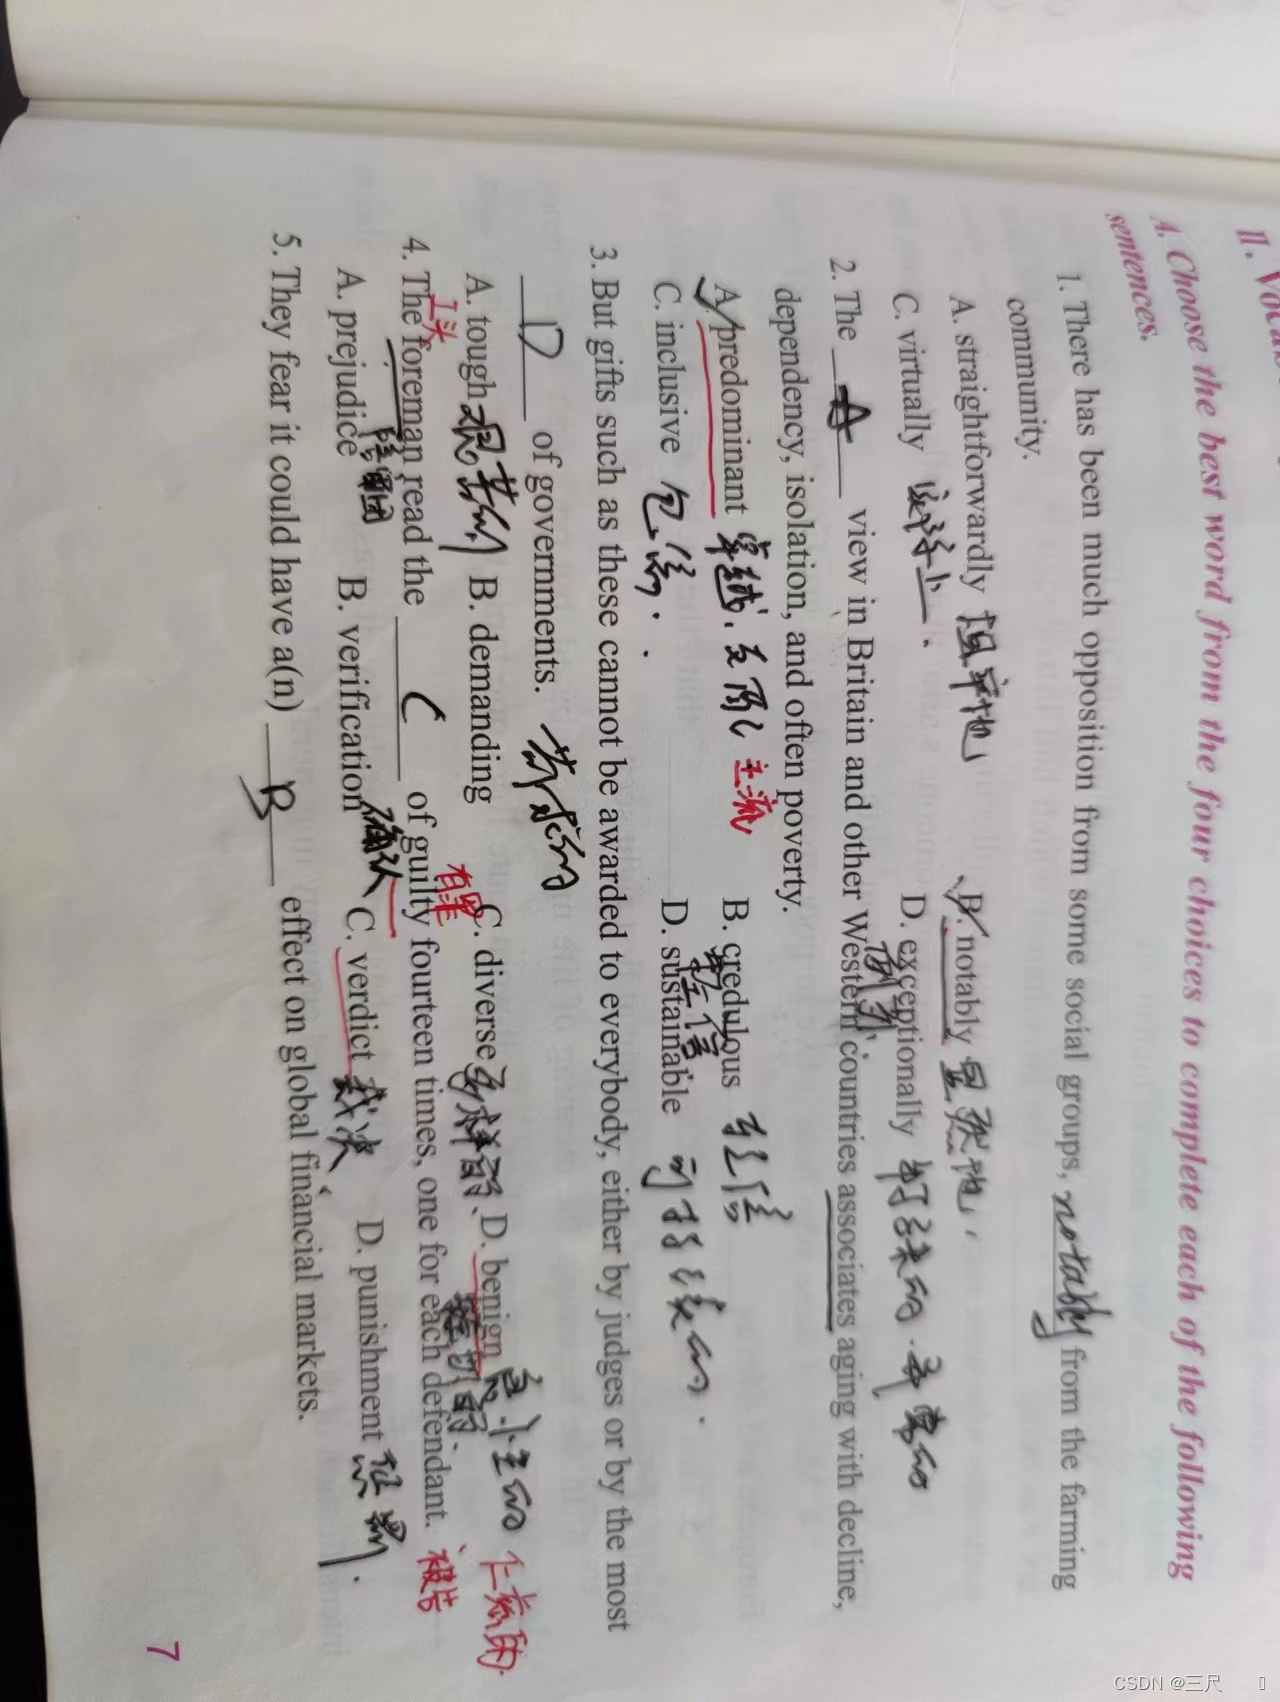 II. Voca
A. Choose the best word from the four choices to complete each of the following
sentences.
1. There has been much opposition from some social groups, notably from the farming
community.
A. straightforwardly 坦率地 B. notably 显然地
C. virtually D. exceptionally 特别 非常的
2. The A view in Britain and other Western countries associates aging with decline,
dependency, isolation, and often poverty.
A. predominant 卓越 支配 主流 B. credulous 轻信
C. inclusive 包 D. sustainable 可持续的
3. But gifts such as these cannot be awarded to everybody, either by judges or by the most
D of governments. 苛求的
A. tough 艰苦的 B. demanding C. diverse 多样的 D. benign 良性的 仁慈的
工头 有罪
4. The foreman read the C of guilty fourteen times, one for each defendant. 被告
陪审团
A. prejudice B. verification 确认 C. verdict 裁决 D. punishment 惩罚
5. They fear it could have a(n) B effect on global financial markets.
7
CSDN @三尺